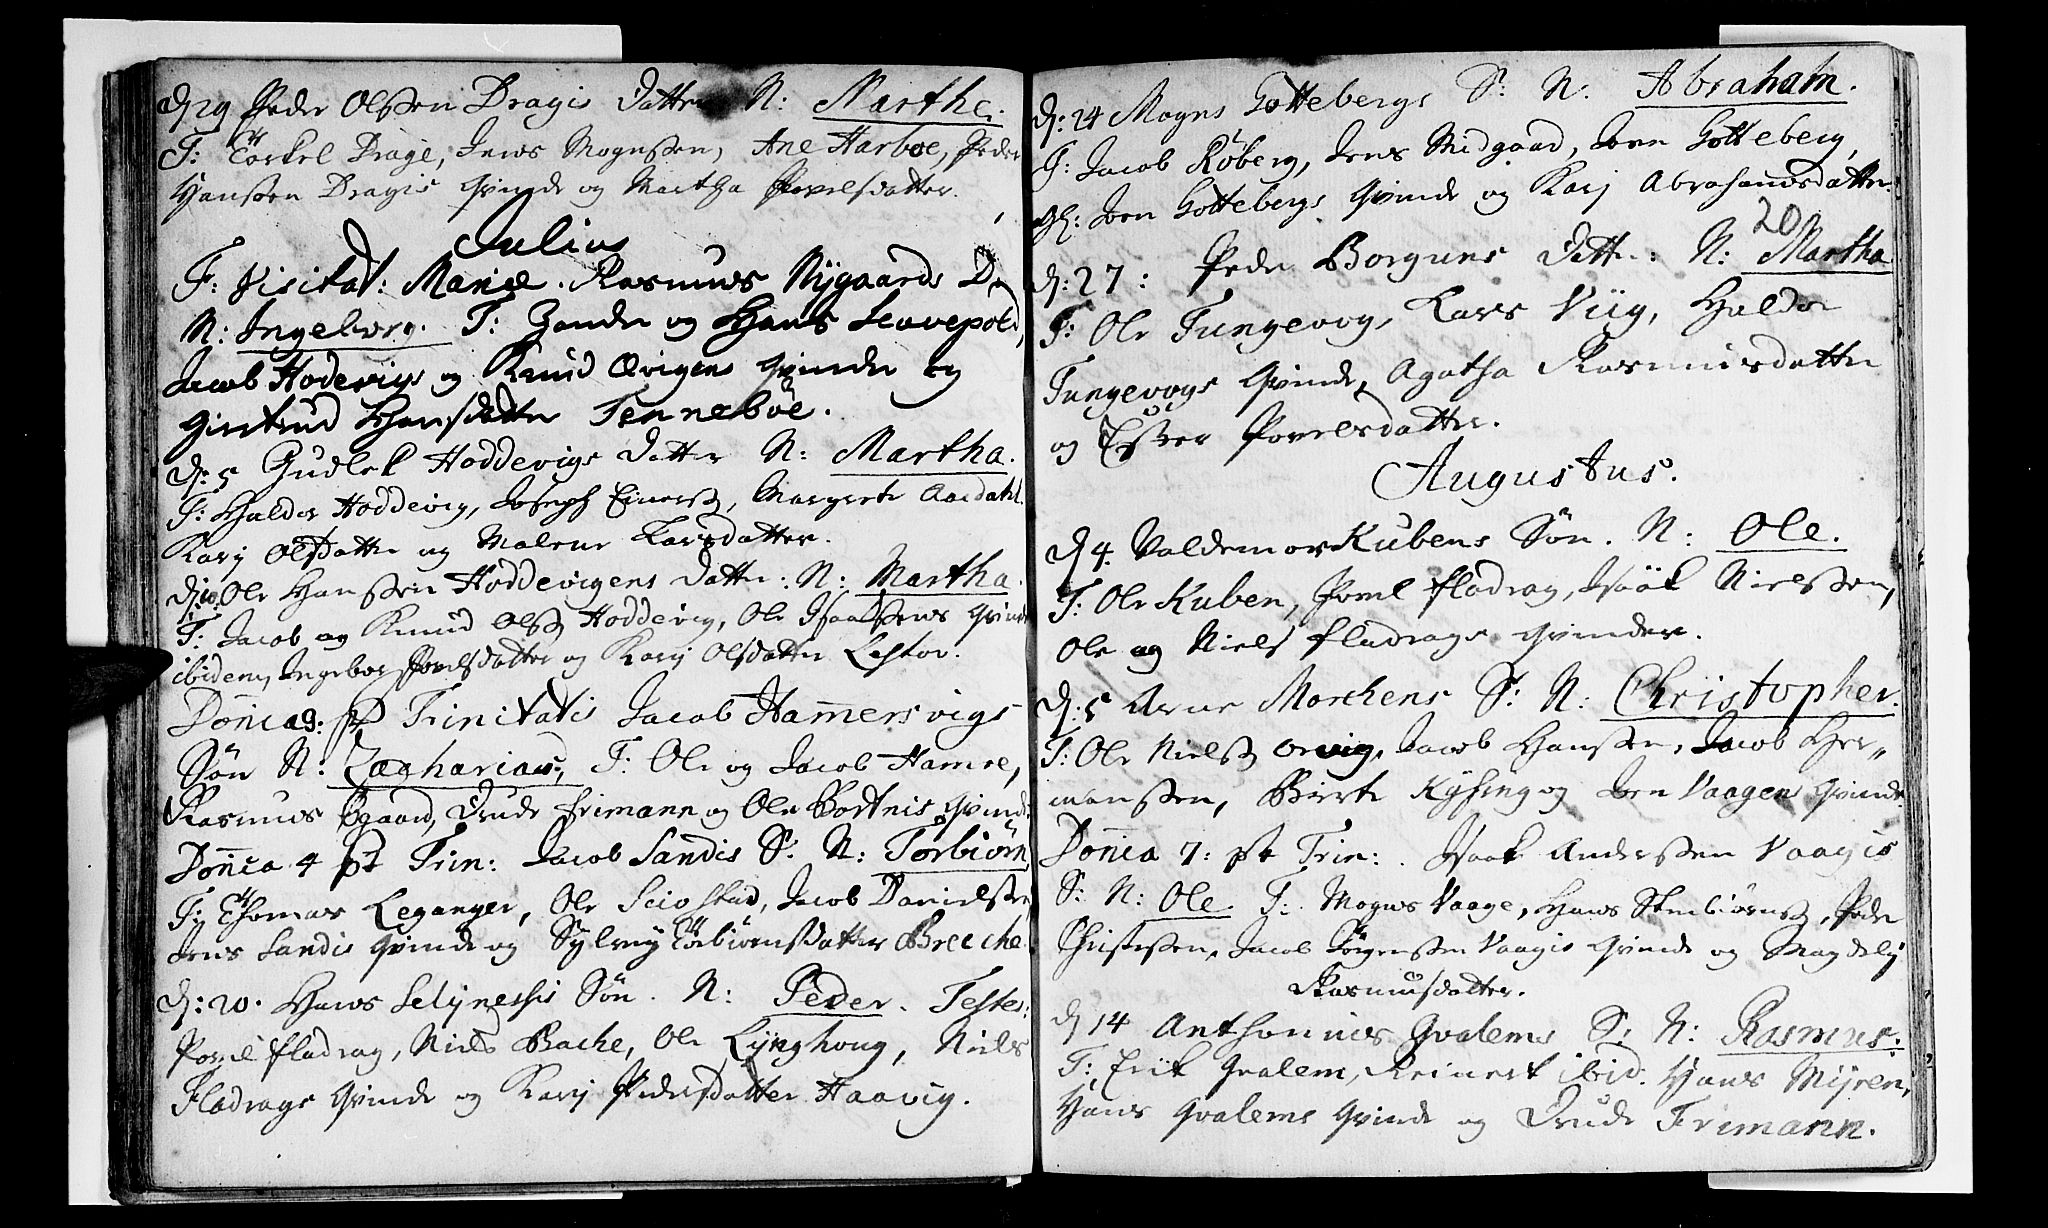 d. 29 Peder Olssen Dragis Datter N: Marthe.
T: Törkel Drage, Jens Mognssen, Ane Harboe, Peder
Hanssen Dragis Qvinde og Martha Povelsdatter.
Julius
F: Visitat: Mariæ. Rasmus Nygaards D.
N: Ingeborg. T: Zander og Hans Leevepold,
Jacob Hodevigs og Knud Ervigens Qvinder og
Giertrud Hansdatter Tenneböe.
d: 5 Gudlek Hoddevigs Datter N: Martha.
T: Halder Hoddevig, Joseph Einerss, Margrete Aardahl
Karj Olsdatter og Malene Larsdatter.
d. 10. Ole Hanssen Hoddevigens Datter: N: Martha.
T: Jacob og Knud Olss Hoddevig, Ole Isaachsens Qvinde
ibidem, Ingebor Povelsdatter og Karj Olsdatter Lestoe.
Donica 3: p Trinitatis Jacob Hamersvigs
Sön N: Zacharias, T: Ole og Jacob Hamre,
Rasmus Ögaard, Drude Frimann og Ole Bortnis Qvinde
Donica 4 pt Trin: Jacob Sandis S: N: Torbiörn
T: Thomas Leganger, Ole Seiostad, Jacob Danielssen
Jens Sandis Qvinde og Sylvey Törbiörnsdatter Breche.
d: 20. Hans Selynesses Sön. N: Peder. Testes:
Povel Fladrag, Niels Bache, Ole Lynghoug, Niels
Fladrags Qvinde og Karj Pedersdatter Haavig.
d: 24 Mogns Gottebergs S: N. Abraham.
T: Jacob Röberg, Jens Midgaard, Joen Gotteberg,
Joen Gottebergs Qvinde og Karj Abrahamsdatter.
20
d: 27: Peder Borguns Datter: N: Martha
T: Ole Tungevog, Lars Viig, Halder
Tungevogs Qvinde, Agatha Rasmusdatter
og Esther Povelsdatter.
Augustus.
d. 4. Valdemar Kubens Sön. N: Ole.
T: Ole Kuben, Povel Fladrag, Isaak Nielssen,
Ole og Niels Fladrags Qvinder.
d. 5 Arne Morchens S: N: Christopher.
T: Ole Nielss Orvig, Jacob Hanssen, Jacob Her„
manssen, Birte Rysing og Joen Vaagens Qvinde
Donica 7: pt Trin: Isaak Anderssen Vaagis
S: N: Ole. T: Mogns Vaage, Hans Stenbiörnss, Peder
Christessen, Jacob Jörgenssen Vaagis Qvinde og Magdelj
Rasmusdatter.
d. 14 Anthonius Qvalems S: N: Rasmus.
T: Erik Qvalem, Reinert ibid. Hans Myren,
Hans Qvalems Qvinde og Drude Frimann.